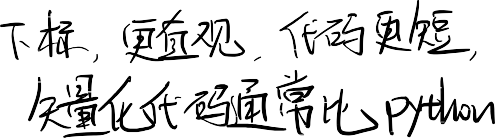 下标，更直观，代码更短，
矢量化代码通常比python